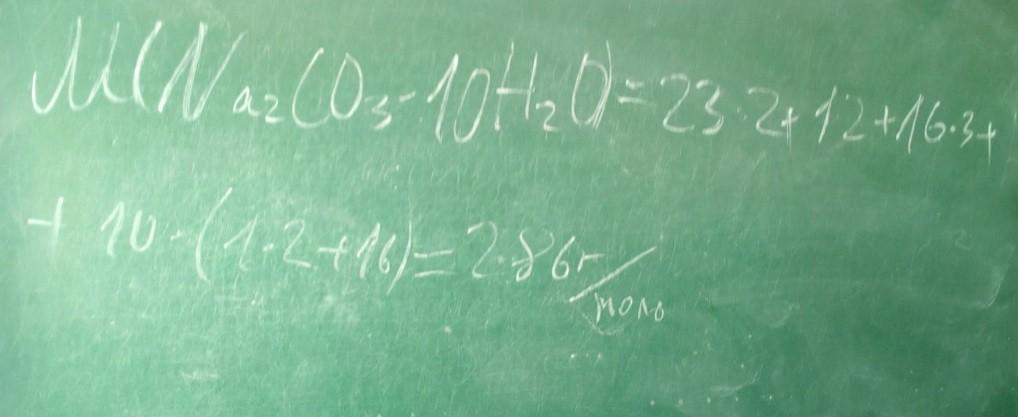 M(Na₂CO₃·10H₂O)=23·2+12+16·3+
+10·(1·2+16)=286г/моль